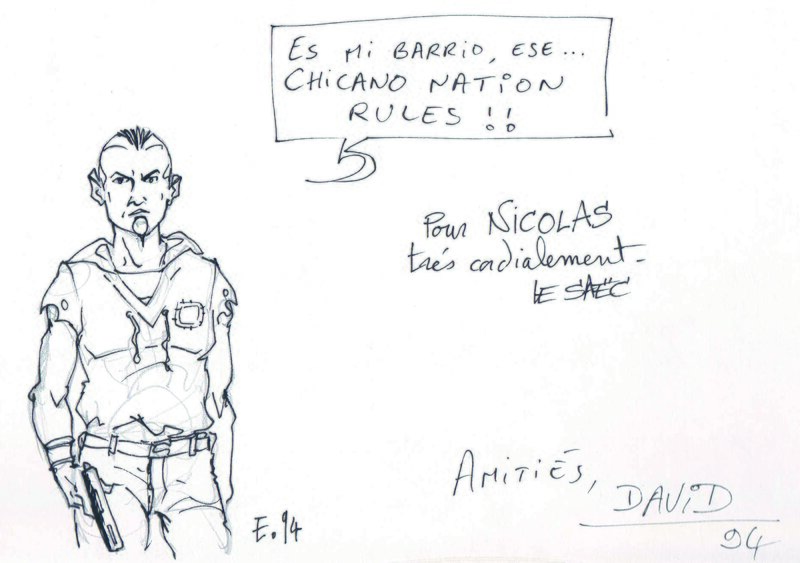 ES MI BARRIO, ESE...
CHICANO NATION
RULES !!
Pour NICOLAS
très cordialement-
LE SAËC
E.94
AMITIÉS,
DAVID
94